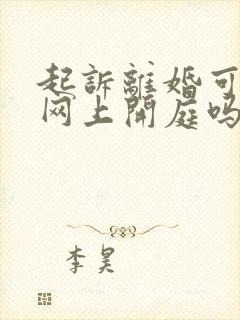 起訴離婚可
网上開庭吗
李昊